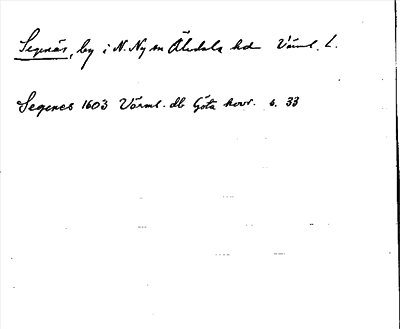 Segenäs, by i N. Ny sn Älvdals hd Värml. L.
Segenes 1603 Värml. db Göta hovr. s. 33